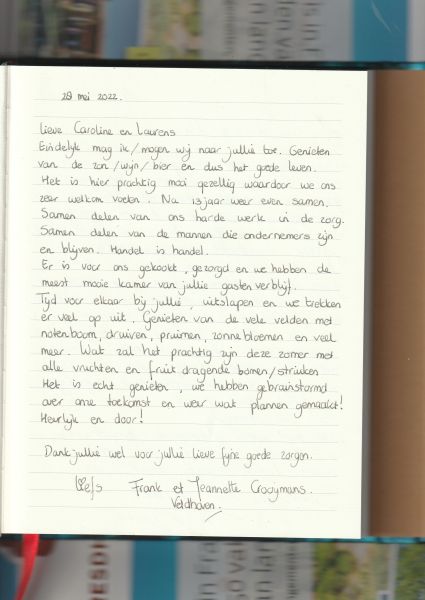 28 mei 2022.
Lieve Caroline en Laurens
Eindelijk mag ik/mogen wij naar jullie toe. Genieten
van de zon/wijn/bier en dus het goede leven.
Het is hier prachtig mooi gezellig waardoor we ons
zeer welkom voelen. Na 13 jaar weer even samen.
Samen delen van ons harde werk in de zorg.
Samen delen van de mannen die ondernemers zijn
en blijven. Handel is handel.
Er is voor ons gekookt, gezorgd en we hebben de
meest mooie kamer van jullie gastenverblijf.
Tijd voor elkaar bij jullie, uitslapen en we trekken
er veel op uit. Genieten van de vele velden met
notenboom, druiven, pruimen, zonnebloemen en veel
meer. Wat zal het prachtig zijn deze zomer met
alle vruchten en fruit dragende bomen/struiken
Het is echt genieten, we hebben gebrainstormd
over onze toekomst en weer wat plannen gemaakt!
Heerlijk en door!
Dank jullie wel voor jullie lieve fijne goede zorgen.
Liefs Frank et Jeannette Crooymans.
Veldhoven.